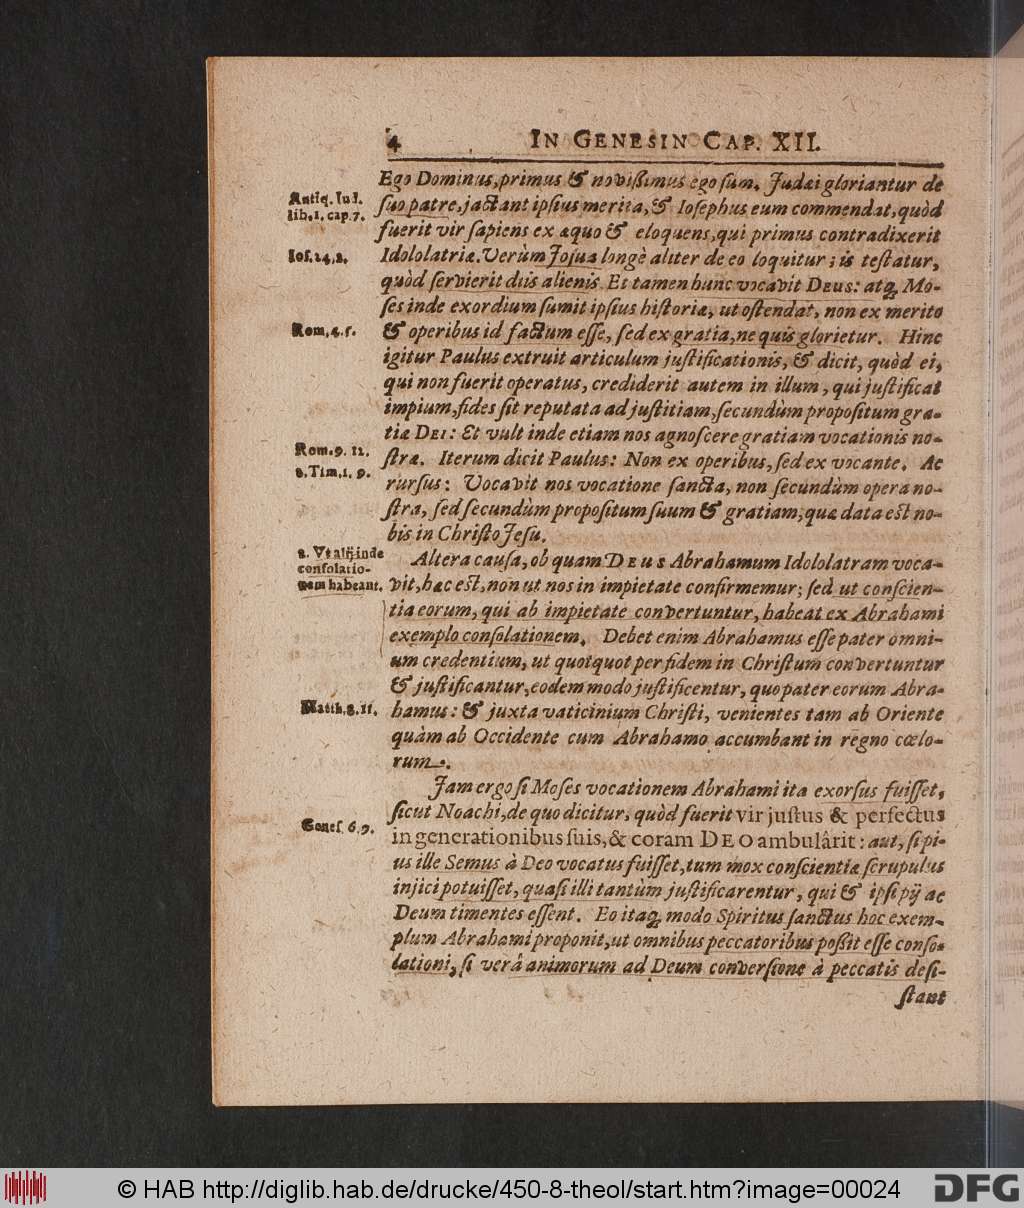 4 IN GENESIN CAP. XII.
Ego Dominus, primus & novißimus ego sum. Judæi gloriantur de
Antiq. Iud.
lib. 1. cap. 7.
suo patre, jactant ipsius merita, & Iosephus eum commendat, quòd
fuerit vir sapiens ex æquo & eloquens, qui primus contradixerit
Ios. 24, 2.
Idololatriæ. Verùm Josua longè aliter de eo loquitur; is testatur,
quòd servierit diis alienis. Et tamen hunc vocavit DEUS: atq; Mo-
ses inde exordium sumit ipsius historiæ, ut ostendat, non ex merito
Rom. 4. 5.
& operibus id factum esse, sed ex gratia, ne quis glorietur. Hinc
igitur Paulus extruit articulum justificationis, & dicit, quòd ei,
qui non fuerit operatus, crediderit autem in illum, qui justificat
impium, fides sit reputata ad justitiam, secundùm propositum gra-
tiæ DEI: Et vult inde etiam nos agnoscere gratiam vocationis no-
Rom. 9. 12.
2. Tim. 1. 9.
stræ. Iterum dicit Paulus: Non ex operibus, sed ex vocante. Ac
rursus: Vocavit nos vocatione sancta, non secundùm opera no-
stra, sed secundùm propositum suum & gratiam, quæ data est no-
bis in Christo Jesu.
2. Vt alij inde
consolatio-
nem habeant.
Altera causa, ob quam DEUS Abrahamum Idololatram voca-
vit, hæc est, non ut nos in impietate confirmemur; sed ut conscien-
tia eorum, qui ab impietate convertuntur, habeat ex Abrahami
exemplo consolationem. Debet enim Abrahamus esse pater omni-
um credentium, ut quotquot per fidem in Christum convertuntur
& justificantur, eodem modo justificentur, quo pater eorum Abra-
Matth. 8. 11.
hamus: & juxta vaticinium Christi, venientes tam ab Oriente
quàm ab Occidente cum Abrahamo accumbant in regno cœlo-
rum.
Jam ergo si Moses vocationem Abrahami ita exorsus fuisset,
Genes. 6. 9.
sicut Noachi, de quo dicitur, quòd fuerit vir justus & perfectus
in generationibus suis, & coram DEO ambulârit: aut, si pi-
us ille Semus à Deo vocatus fuisset, tum mox conscientiæ scrupulus
injici potuisset, quasi illi tantùm justificarentur, qui & ipsi pij ac
Deum timentes essent. Eo itaq; modo Spiritus sanctus hoc exem-
plum Abrahami proponit, ut omnibus peccatoribus poßit esse conso-
lationi, si verâ animorum ad Deum conversione à peccatis desi-
stant
© HAB http://diglib.hab.de/drucke/450-8-theol/start.htm?image=00024
DFG